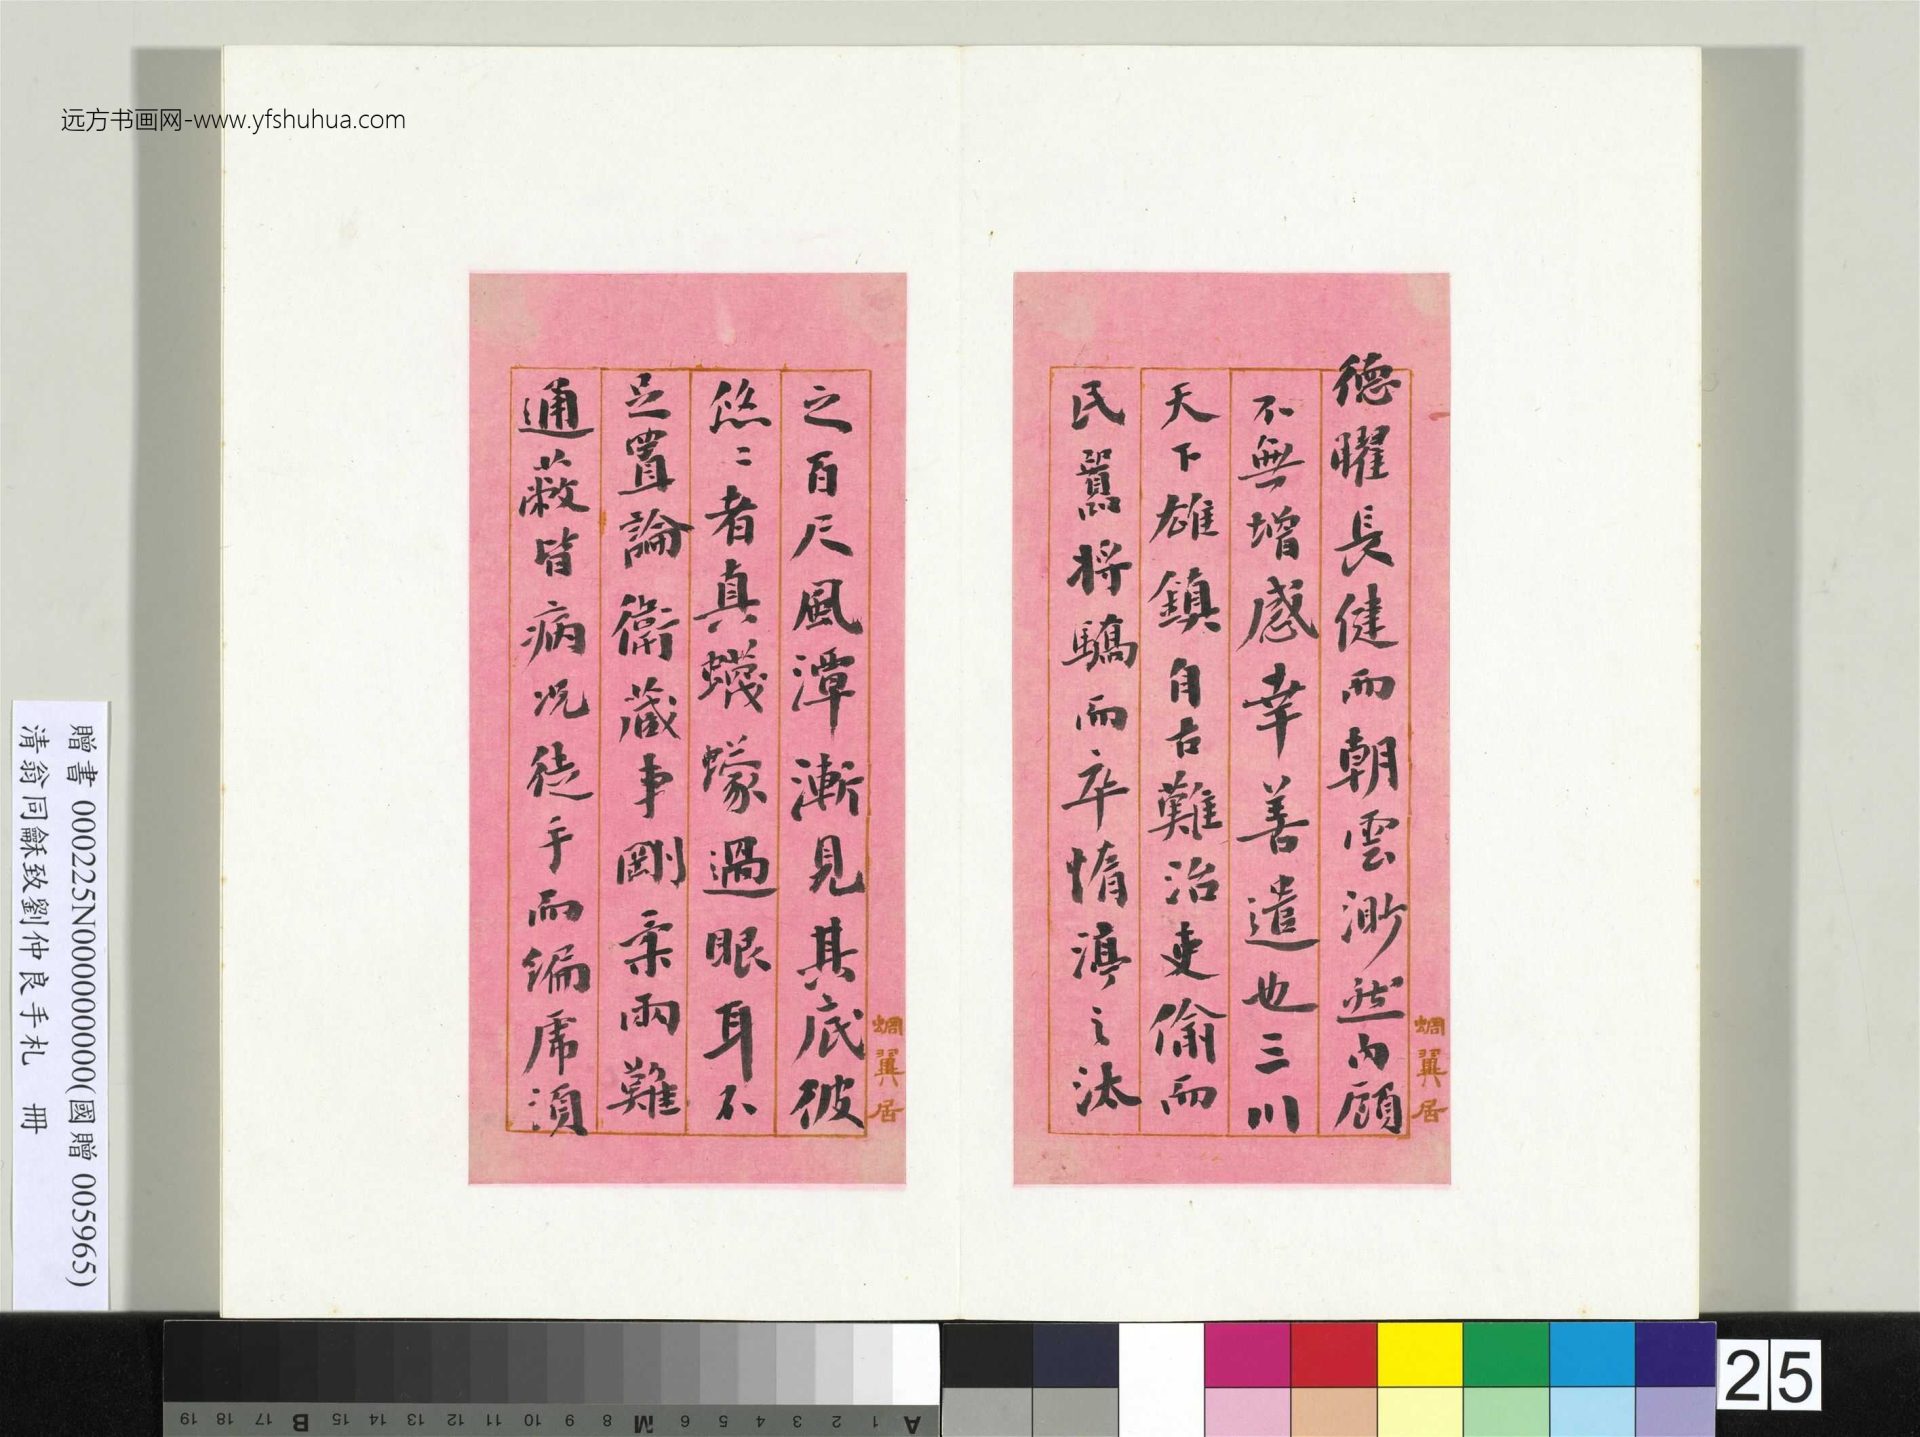 远方书画网-www.yfshuhua.com
德曜長健而朝雲渺然内顧
不無增感幸善遣也三川
天下雄鎮自古難治吏偷而
民囂将驕而卒惰滇之汰
蜩翼居
之百尺風潭漸見其底彼
悠〻者真蠛蠓過眼耳不
足置論衛藏事剛柔兩難
通蔽皆病况徒手而編席須
蜩翼居
贈書 000225N000000000(國贈 005965)
清翁同龢致劉仲良手札 冊
A 1 2 3 4 5 6 M 8 9 10 11 12 13 14 15 B 17 18 19
25